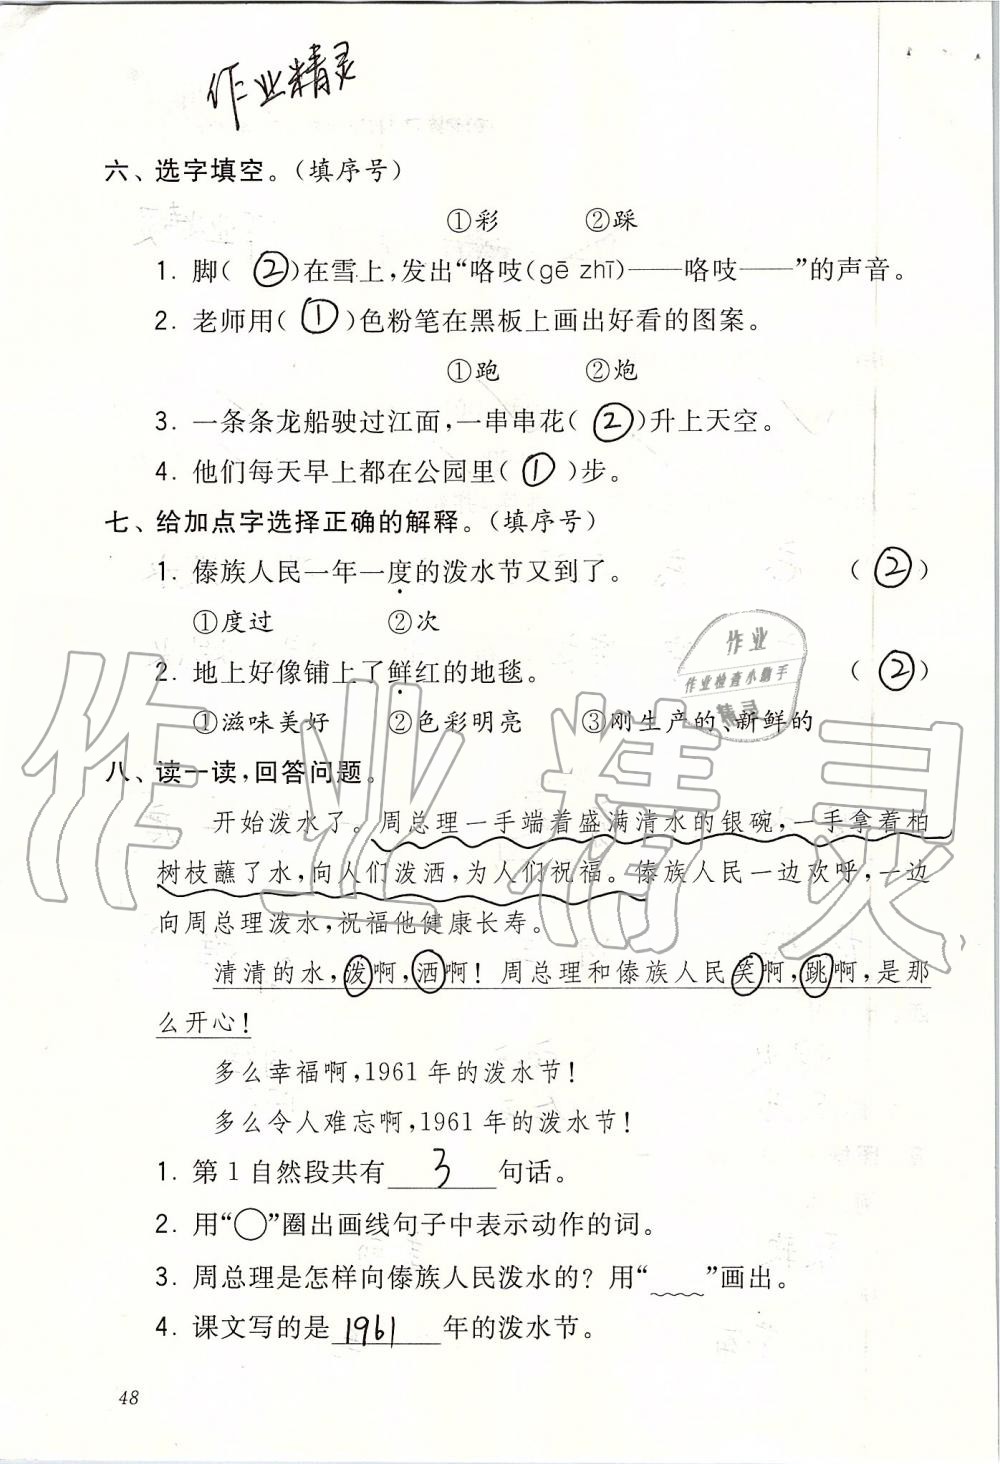 作业精灵
六、选字填空。(填序号)
①彩 ②踩
1. 脚( ② )在雪上,发出“咯吱(gē zhī)——咯吱——”的声音。
2. 老师用( ① )色粉笔在黑板上画出好看的图案。
①跑 ②炮
3. 一条条龙船驶过江面,一串串花( ② )升上天空。
4. 他们每天早上都在公园里( ① )步。
七、给加点字选择正确的解释。(填序号)
1. 傣族人民一年一度的泼水节又到了。 ( ② )
①度过 ②次
2. 地上好像铺上了鲜红的地毯。 ( ② )
①滋味美好 ②色彩明亮 ③刚生产的、新鲜的
作业
作业检查小助手
精灵
作业精灵
八、读一读,回答问题。
开始泼水了。周总理一手端着盛满清水的银碗,一手拿着柏
树枝蘸了水,向人们泼洒,为人们祝福。傣族人民一边欢呼,一边
向周总理泼水,祝福他健康长寿。
清清的水,泼啊,洒啊!周总理和傣族人民笑啊,跳啊,是那
么开心!
多么幸福啊,1961年的泼水节!
多么令人难忘啊,1961年的泼水节!
1. 第1自然段共有 3 句话。
2. 用“○”圈出画线句子中表示动作的词。
3. 周总理是怎样向傣族人民泼水的?用“﹏﹏”画出。
4. 课文写的是 1961 年的泼水节。
48